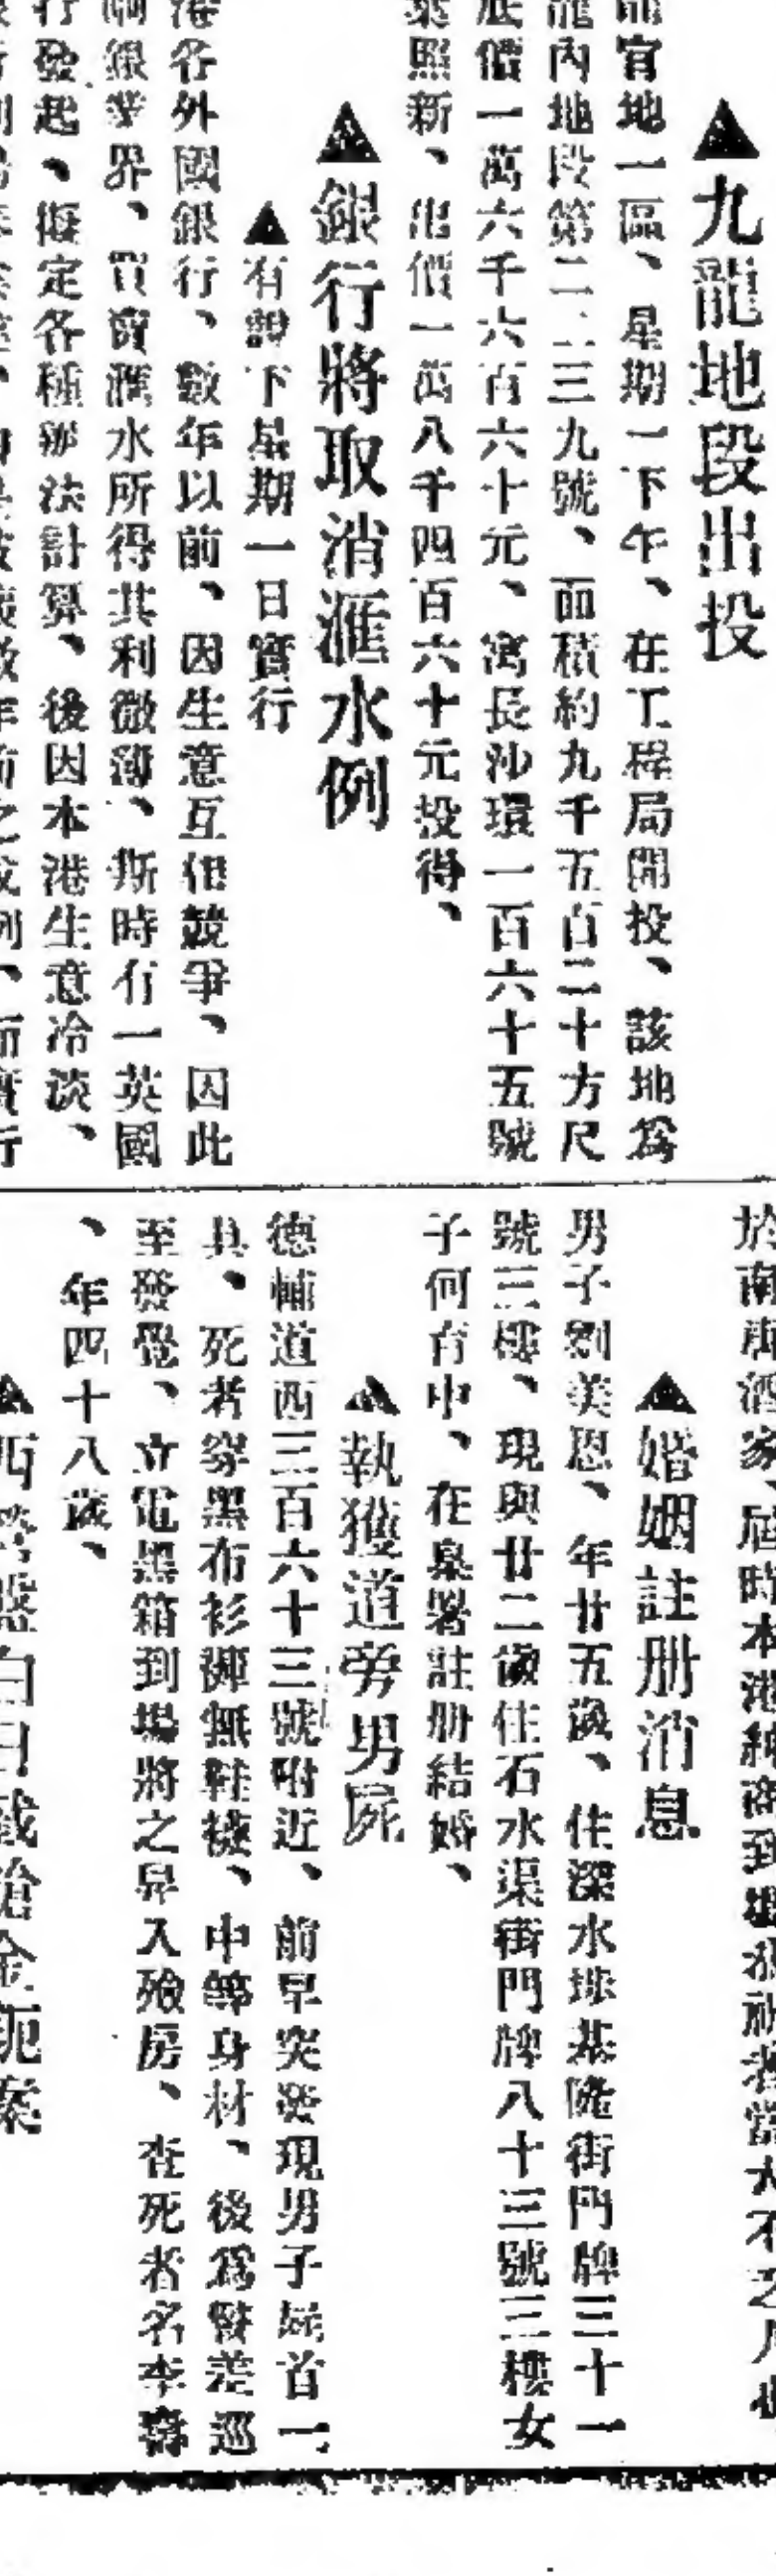 ▲九龍地段出投
官地一區、星期一下午、在工程局開投、該地爲
龍內地段第二二三九號、面積約九千五百二十方尺
底價一萬六千六百六十元、寓長沙環一百六十五號
葉照新、出價一萬八千四百六十元投得、
▲銀行將取消滙水例
▲有說下星期一日實行
港各外國銀行、數年以前、因生意互相競爭、因此
銀業界、買賣滙水所得其利微薄、斯時有一英國
行發起、擬定各種辦法計算、後因本港生意冷淡、
於南唐酒家、屆時本港
▲婚姻註册消息
男子劉美恩、年廿五歲、住深水埗基隆街門牌三十一
號三樓、現與廿二歲住石水渠街門牌八十三號三樓女
子何育中、在臬署註册結婚、
▲執獲道旁男屍
德輔道西三百六十三號附近、前早突發現男子屍首一
具、死者穿黑布衫褲無鞋襪、中等身材、後爲警差巡
至發覺、立電黑箱到塲將之舁入殮房、查死者名李壽
、年四十八歲、